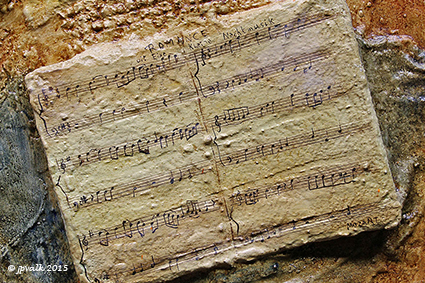 ROMANCE
Kleine Nachtmusik
MOZART
© jpvalk 2015